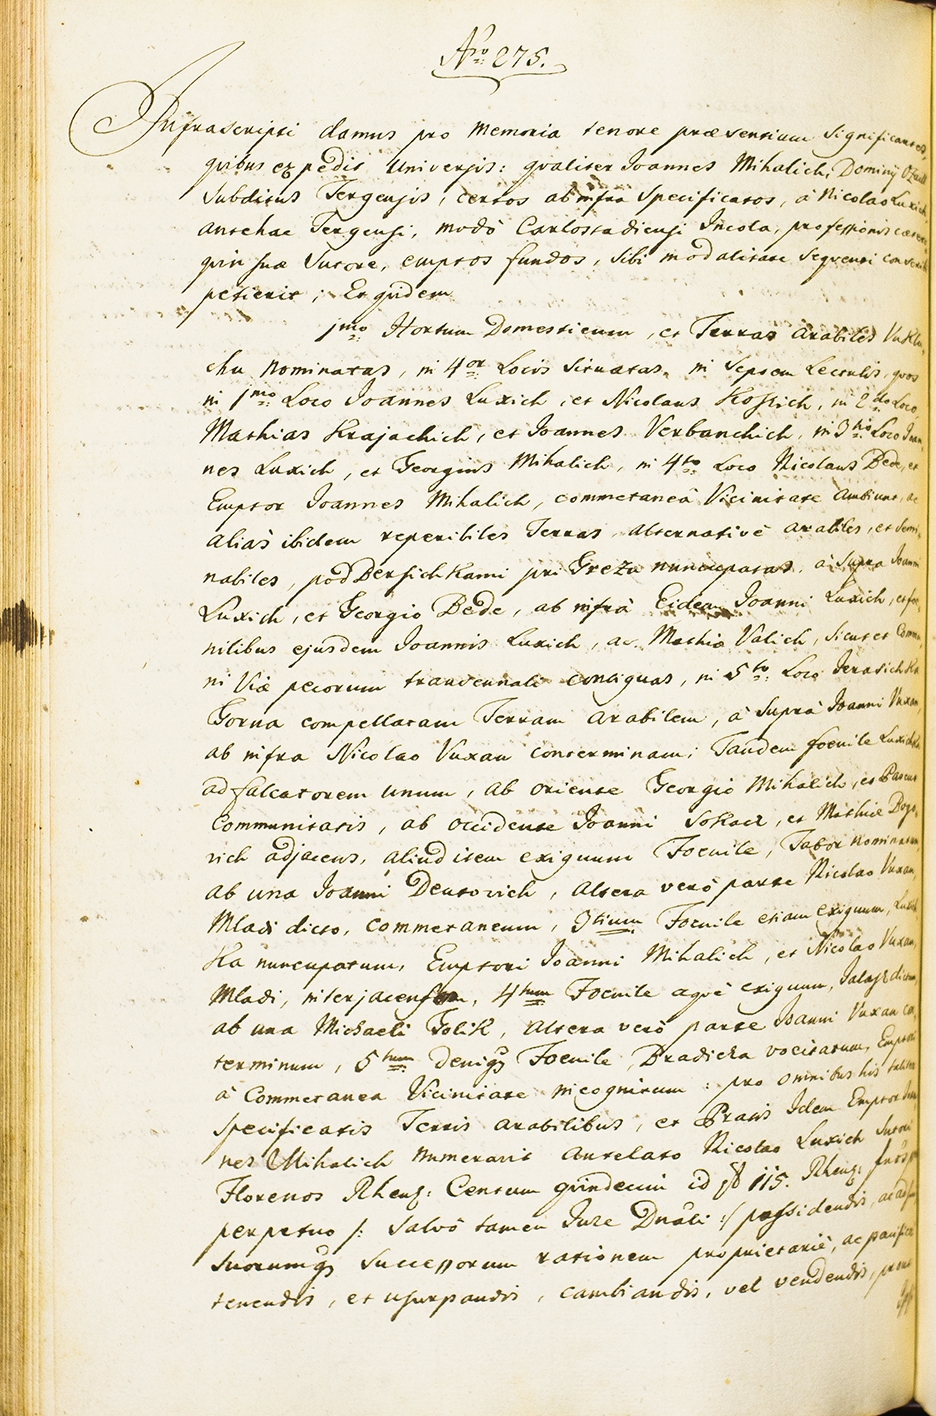 Nro 275.
Infrascripti damus pro memoria tenore præsentium Significantes,
quibus expedit Universis: qvaliter Joannes Mihalich, Dominÿ
Subditus Tergensis, certos ab infra Specificatos, à Nicolao Luxich
antehac Tergensi, modò Carlostadiensi Incola, professionis
qvin suæ Sutore, emptos fundos, sibi modalitate seqventi
petierit; Et qvidem
1mo Hortum Domesticum, et Terras arabiles
chu nominatas, in 4or Locis Situatas, in Septem Lectulis, qvos
in 1mo Loco Joannes Luxich, et Nicolaus Kossich, in 2do Loco
Mathias Krajachich, et Joannes Verbanchich, in 3tio Loco Joan
nes Luxich, et Georgius Mihalich, in 4to Loco Nicolaus Bede, et
Emptor Joannes Mihalich, commetaneâ Vicinitate ambiunt, ac
aliàs ibidem reperibiles Terras, alternativè arabiles, et Semi
nabiles, pod Bersichkami pri Greza nuncupatas, à Supra Joanni
Luxich, et Georgio Bede, ab infrà Eidem Joanni Luxich, et foe
nilibus ejusdem Joannis Luxich, ac Mathiæ Valich, sicut et Commu
ni Viæ pecorum transennali contiguas, in 5to Loco
Gorna compellatam Terram arabilem, à Suprà Joanni Vuxan,
ab infra Nicolao Vuxan conterminam; Tandem foenile
ad falcatorem unum, ab oriente Georgio Mihalich, et Pascuo
Communitatis, ab occidente Joanni Sokacz, et Mathiæ
vich adjacens, aliud item exiguum Foenile, Tabor nominatum
ab una Joanni Deutovich, altera verò parte Nicolao Vuxan,
Mladi dicto, commetaneum, 3tium Foenile etiam exiguum,
ka nuncupatum, Emptori Joanni Mihalich, et Nicolao Vuxan,
Mladi, interjacens, 4tum Foenile aeqvè exiguum, dictum,
ab una Michaeli Folik, altera verò parte Joanni Vuxan con
terminum, 5tum deniq̃ Foenile, Bradicza vocitatum,
à Commetanea Vicinitate incognitum: pro omnibus his
specificatis Terris arabilibus, et Pratis Idem Emptor Joan
nes Mihalich numeravit antelato Nicolao Luxich Sutori
Florenos Rhens: Centum qvindecim id est f 115. Rhens:
perpetuo /: Salvô tamen Jure Dnali :/ possidendis,
suorumq̃ Successorum rationem proprietariè, ac pacificè
tenendis, et usurpandis, cambiandis, vel vendendis, prout